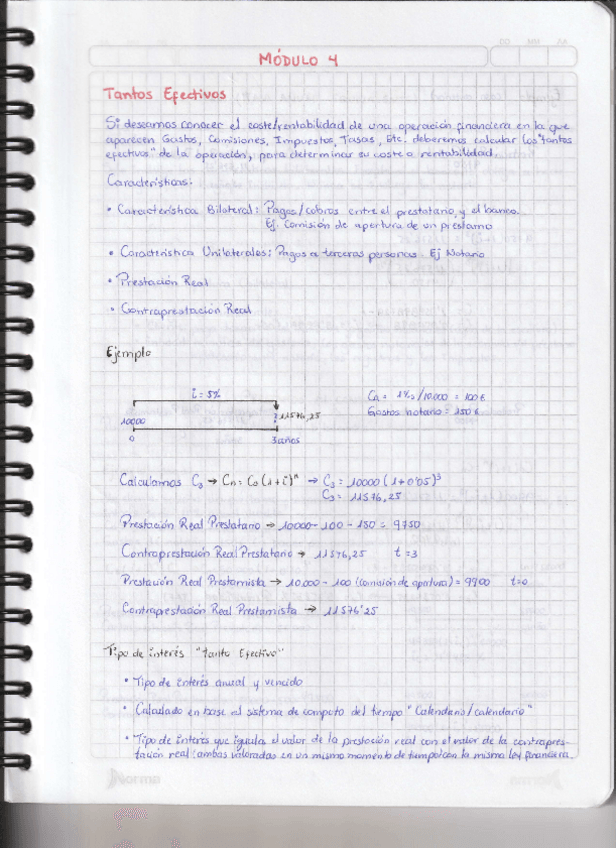 AA MM DD
MÓDULO 4
Tantos Efectivos
Si deseamos conocer el coste/rentabilidad de una operación financiera en la que
aparecen Gastos, Comisiones, Impuestos, Tasas, Etc. deberemos calcular los "tantos
efectivos" de la operación, para determinar su coste o rentabilidad.
Características:
• Característica Bilateral: Pagos/cobros entre el prestatario y el banco.
Ej. Comisión de apertura de un préstamo
• Característica Unilaterales: Pagos a terceras personas. Ej Notario
• Prestación Real
• Contraprestación Real
Ejemplo
i = 5%
CA = 1%/10.000 = 100€
10000
11576,25
Gastos notario = 150€
0 3 años
Calculamos C3 → Cn = C0 (1+i)^n → C3 = 10000 (1+0'05)^3
C3 = 11576,25
Prestación Real Prestatario → 10000 - 100 - 150 = 9750
Contraprestación Real Prestatario → 11576,25 t=3
Prestación Real Prestamista → 10.000 - 100 (comisión de apertura) = 9900 t=0
Contraprestación Real Prestamista → 11576'25
Tipo de interés "tanto Efectivo"
• Tipo de interés anual y vencido
• Calculado en base al sistema de computo del tiempo "Calendario/calendario"
• Tipo de interés que iguala el valor de la prestación real con el valor de la contrapres-
tación real (ambas valoradas en un mismo momento de tiempo) con la misma ley financiera.
Norma